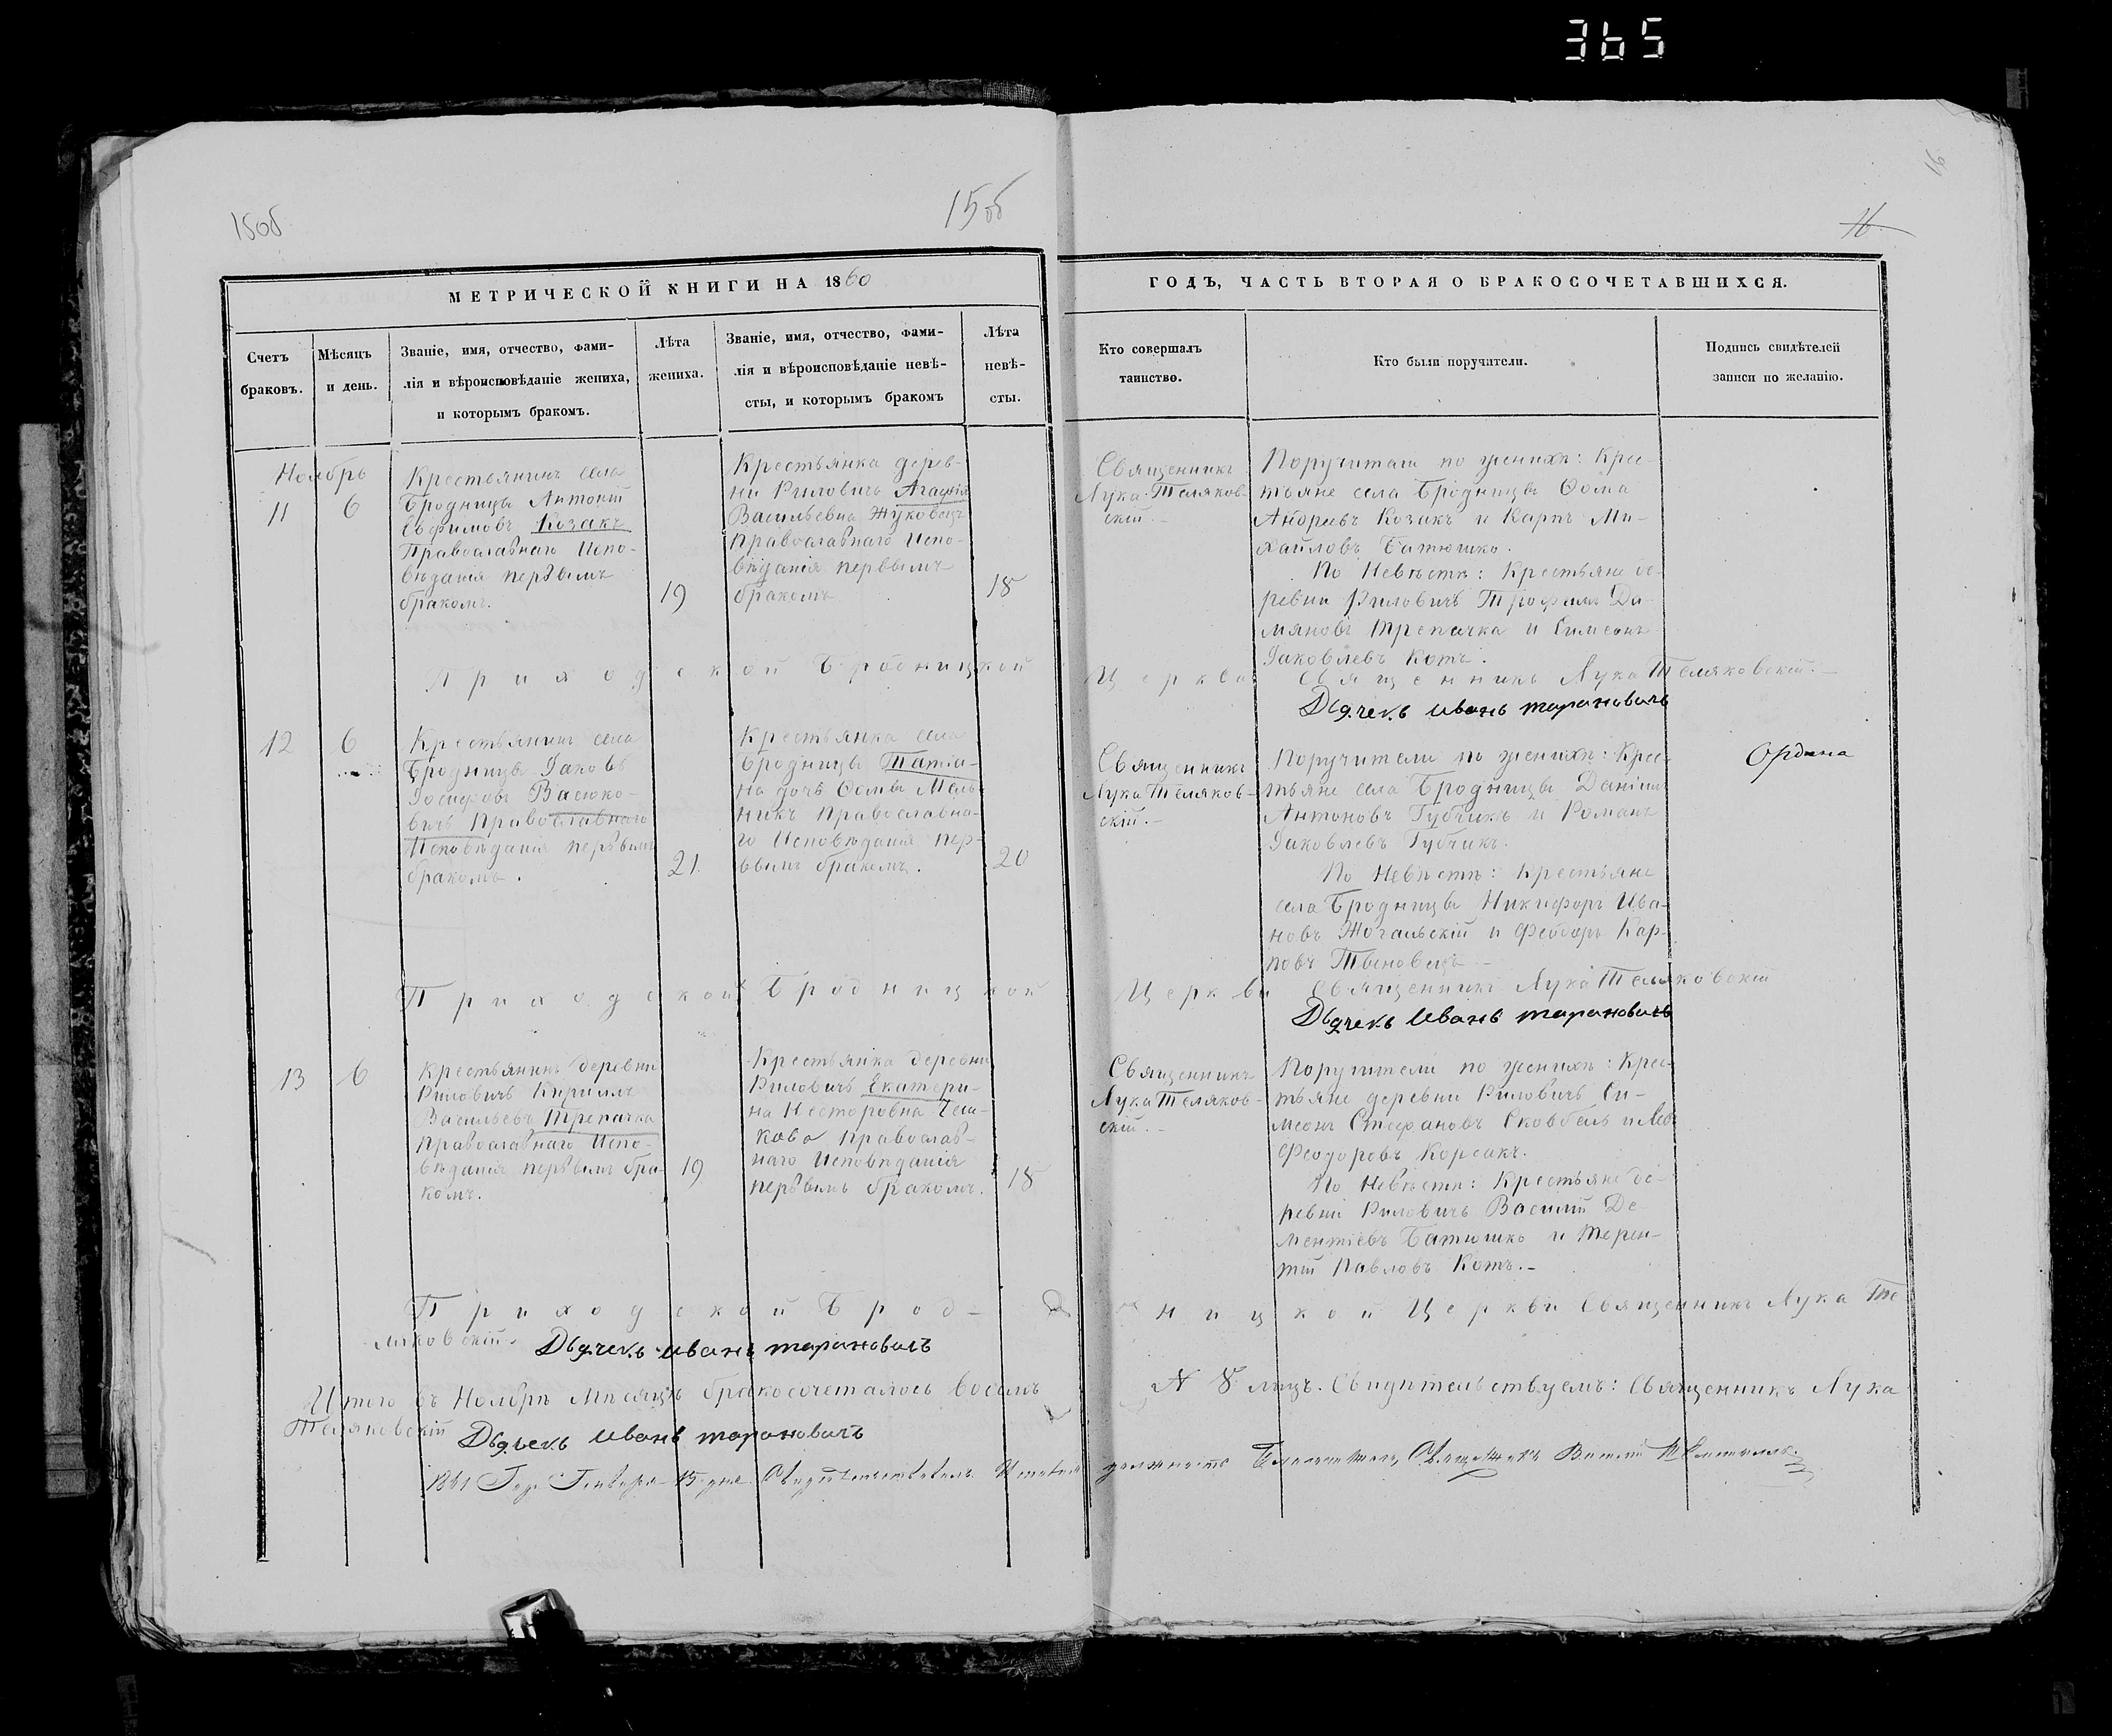 365
16
15об
15об
16
МЕТРИЧЕСКОЙ КНИГИ НА 1860
ГОДЪ, ЧАСТЬ ВТОРАЯ О БРАКОСОЧЕТАВШИХСЯ.
Счетъ
браковъ.
Мѣсяцъ
и день.
Званіе, имя, отчество, фами-
лія и вѣроисповѣданіе жениха,
и которымъ бракомъ.
Лѣта
жениха.
Званіе, имя, отчество, фами-
лія и вѣроисповѣданіе невѣ-
сты, и которымъ бракомъ
Лѣта
невѣ-
сты.
Кто совершалъ
таинство.
Кто были поручатели.
Подпись свидѣтелей
записи по желанію.
Ноябрь
11
6
Крестьянинъ села
Бродницы Антоній
Евфимовъ Козакъ
Православнаго Испо-
вѣданія первымъ
бракомъ.
19
Крестьянка дерев-
ни Риловичъ Агафія
Васильевна Жуковецъ
Православнаго Испо-
вѣданія первымъ
бракомъ
18
Священникъ
Лука Теляков-
скій.-
Поручители по женихѣ: Крес-
тьяне села Бродницы Ѳома
Андреевъ Козакъ и Карпъ Ми-
хайловъ Батюшко.
По Невѣстѣ: Крестьяне де-
ревни Риловичъ Трофимъ Да-
мяновъ Трепачка и Симеонъ
Іаковлевъ Котъ.
Приходской Бродницкой Церкви Священникъ Лука Теляковскій.-
Дьячекъ Иванъ Тарановичъ
12
6
Крестьянинъ села
Бродницы Іаковъ
Іосифовъ Васюко-
вичъ Православнаго
Исповѣданія первымъ
бракомъ.
21
Крестьянка села
Бродницы Татіа-
на дочь Ѳомы Мель-
никъ Православна-
го Исповѣданія пер-
вымъ бракомъ.
20
Священникъ
Лука Теляков-
скій.-
Поручители по женихѣ: Крес-
тьяне села Бродницы Даніилъ
Антоновъ Губчикъ и Романъ
Іаковлевъ Губчикъ.
По Невѣстѣ: Крестьяне
села Бродницы Никифоръ Ива-
новъ Жогальскій и Феодоръ Кар-
повъ Тыновецъ-
Ордина
Приходской Бродницкой Церкви Священникъ Лука Теляковскій
Дьячекъ Иванъ Тарановичъ
13
6
Крестьянинъ деревни
Риловичъ Кириллъ
Васильевъ Трепачка
Православнаго Испо-
вѣданія первымъ бра-
комъ.
19
Крестьянка деревни
Риловичъ Екатери-
на Несторовна
Православ-
наго Исповѣданія
первымъ бракомъ.
18
Священникъ
Лука Теляков-
скій.-
Поручители по женихѣ: Крес-
тьяне деревни Риловичъ Си-
меонъ Стефановъ
Феодоровъ Корсакъ.
По Невѣстѣ: Крестьяне де-
ревни Риловичъ Василій Де-
ментіевъ Батюшко и Терен-
тій Павловъ Котъ.-
Приходской Брод-
ницкой Церкви Священникъ Лука Те
ляковскій. Дьячекъ Иванъ Тарановичъ
Итого въ Ноябрѣ Мѣсяцѣ бракосочеталось восемь
№ 8 лицъ. Свидѣтельствуемъ: Священникъ Лука
Теляковскій Дьячекъ Иванъ Тарановичъ
1861 Года Генваря 15 дня Свидѣтельствовалъ
должность Благочиннаго Священникъ